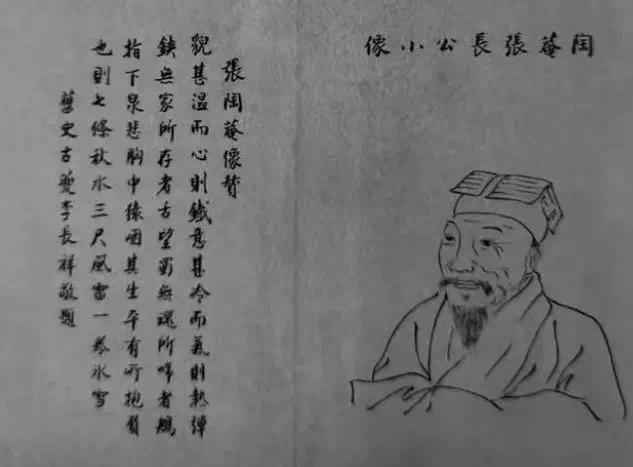 陶菴張長公小像
張陶菴像贊
貌甚溫而心則鐵意甚冷而氣則熱彈
鋏無家所存者舌望蜀無魂所啼者鵑
指下泉悲胸中猿咽其生平有所抱負
也則七條秋水三尺風雷一卷冰雪
舊史古夔李長祥敬題